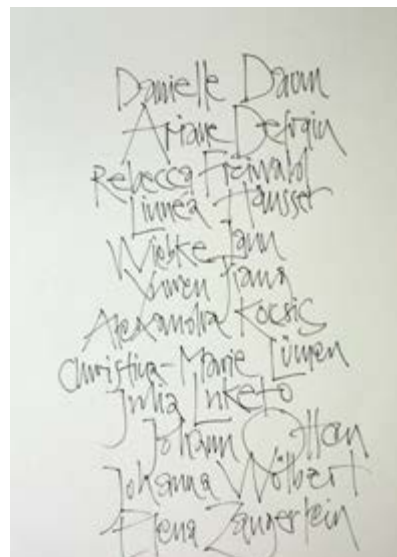 Danielle Daum
Ariane Defrain
Rebecca Freiwald
Linnéa Hausser
Wiebke Jann
Alexandra Kocsis
Christina-Marie Lümen
Julia
Johann Otten
Johanna Wölbert
Elena Zangerlein